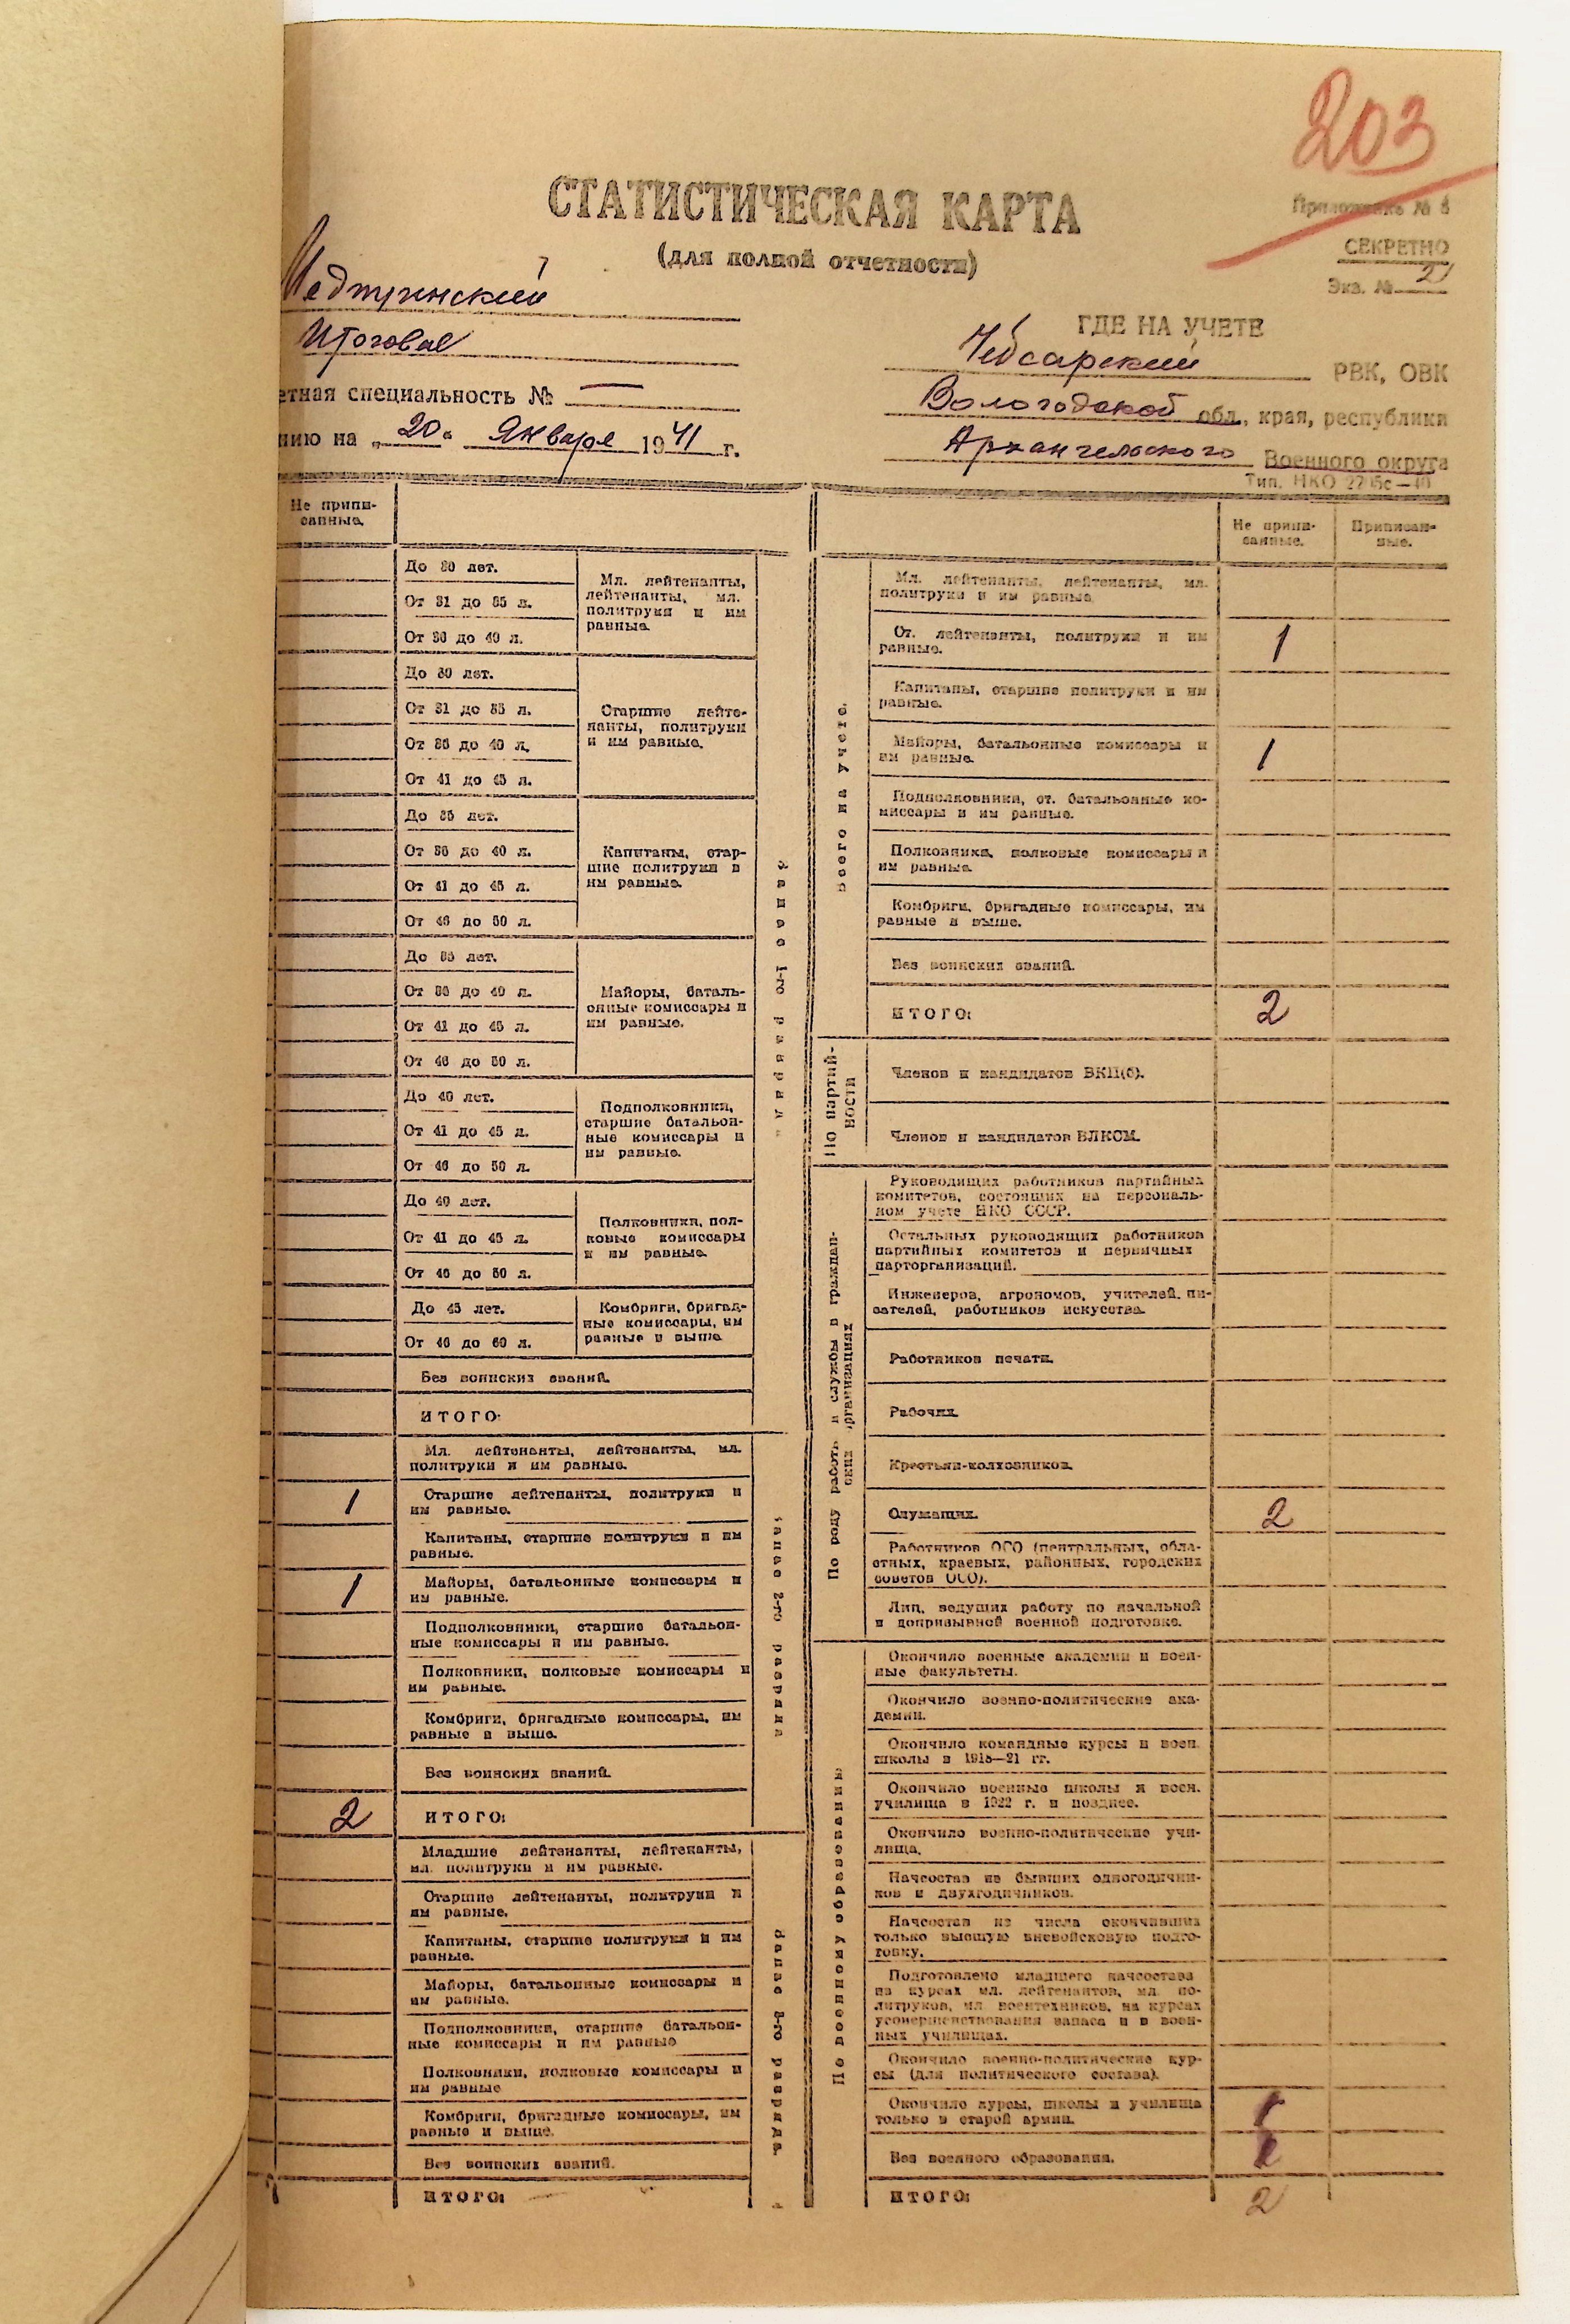 203
СТАТИСТИЧЕСКАЯ КАРТА
(для полной отчетности)
СЕКРЕТНО
Экз. № 2
Итоговые
етная специальность № —
нию на „20“ Января 1941 г.
ГДЕ НА УЧЕТЕ
Чебсарский РВК, ОВК
Вологодской обл., края, республики
Архангельского Военного округа
Тип. НКО
Не припи-
санные.
До 30 лет.
От 31 до 35 л.
От 36 до 40 л.
Мл. лейтенанты,
лейтенанты, мл.
политруки и им
равные.
До 30 лет.
От 31 до 35 л.
От 36 до 40 л.
От 41 до 45 л.
Старшие лейте-
нанты, политруки
и им равные.
До 35 лет.
От 36 до 40 л.
От 41 до 45 л.
От 46 до 50 л.
Капитаны, стар-
шие политруки и
им равные.
До 35 лет.
От 36 до 40 л.
От 41 до 45 л.
От 46 до 50 л.
Майоры, баталь-
онные комиссары и
им равные.
До 40 лет.
От 41 до 45 л.
От 46 до 50 л.
Подполковники,
старшие батальон-
ные комиссары и
им равные.
До 40 лет.
От 41 до 45 л.
От 46 до 50 л.
Полковники, пол-
ковые комиссары
и им равные.
До 45 лет.
От 46 до 60 л.
Комбриги, бригад-
ные комиссары, им
равные и выше
Без воинских званий.
ИТОГО:
Запас 1-го разряда
Мл. лейтенанты, лейтенанты, мл.
политруки и им равные.
1 Старшие лейтенанты, политруки и
им равные.
Капитаны, старшие политруки и им
равные.
1 Майоры, батальонные комиссары и
им равные.
Подполковники, старшие батальон-
ные комиссары и им равные.
Полковники, полковые комиссары и
им равные.
Комбриги, бригадные комиссары, им
равные и выше.
Без воинских званий.
2 ИТОГО:
запас 2-го разряда
Младшие лейтенанты, лейтенанты,
мл. политруки и им равные.
Старшие лейтенанты, политруки и
им равные.
Капитаны, старшие политруки и им
равные.
Майоры, батальонные комиссары и
им равные.
Подполковники, старшие батальон-
ные комиссары и им равные
Полковники, полковые комиссары и
им равные
Комбриги, бригадные комиссары, им
равные и выше.
Без воинских званий.
ИТОГО:
запас 3-го разряда
Не припи-
санные.
Приписан-
ные.
Всего на учете.
Мл. лейтенанты, лейтенанты, мл.
политруки и им равные
Ст. лейтенанты, политруки и им
равные. 1
Капитаны, старшие политруки и им
равные.
Майоры, батальонные комиссары и
им равные. 1
Подполковники, ст. батальонные ко-
миссары и им равные.
Полковники, полковые комиссары и
им равные.
Комбриги, бригадные комиссары, им
равные и выше.
Без воинских званий.
ИТОГО: 2
По партий-
ности
Членов и кандидатов ВКП(б).
Членов и кандидатов ВЛКСМ.
По роду работы и службы в граждан-
ских организациях
Руководящих работников партийных
комитетов, состоящих на персональ-
ном учете НКО СССР.
Остальных руководящих работников
партийных комитетов и первичных
парторганизаций.
Инженеров, агрономов, учителей, пи-
сателей, работников искусства.
Работников печати.
Рабочих.
Крестьян-колхозников.
Служащих. 2
Работников ОСО (центральных, обла-
стных, краевых, районных, городских
советов ОСО).
Лиц, ведущих работу по начальной
и допризывной военной подготовке.
По военному образованию
Окончило военные академии и воен-
ные факультеты.
Окончило военно-политические ака-
демии.
Окончило командные курсы и воен.
школы в 1918—21 гг.
Окончило военные школы и воен.
училища в 1922 г. и позднее.
Окончило военно-политические учи-
лища.
Начсостав из бывших одногодични-
ков и двухгодичников.
Начсостав из числа окончивших
только высшую вневойсковую подго-
товку.
Подготовлено младшего начсостава
на курсах мл. лейтенантов, мл. по-
литруков, мл воентехников, на курсах
усовершенствования запаса и в воен-
ных училищах.
Окончило военно-политические кур-
сы (для политического состава).
Окончило курсы, школы и училища
только в старой армии.
Без военного образования.
ИТОГО: 2